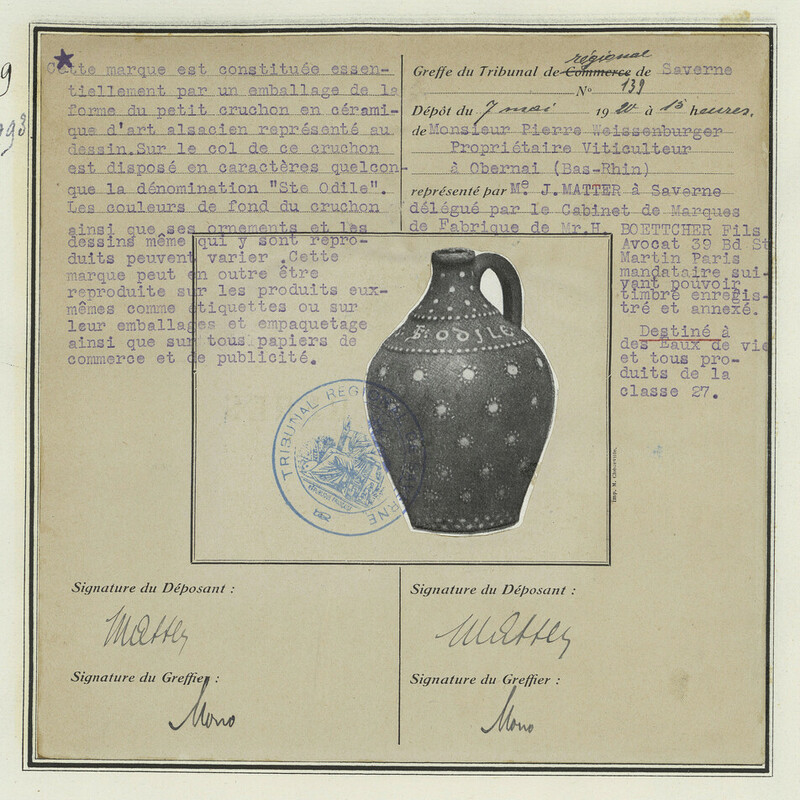 Cette marque est constituée essen-
tiellement par un emballage de la
forme du petit cruchon en cérami-
que d'art alsacien représenté au
dessin.Sur le col de ce cruchon
est disposé en caractères quelcon-
que la dénomination "Ste Odile".
Les couleurs de fond du cruchon
ainsi que ses ornements et les
dessins même qui y sont repro-
duits peuvent varier .Cette
marque peut en outre être
reproduite sur les produits eux-
mêmes comme étiquettes ou sur
leur emballages et empaquetage
ainsi que sur tous papiers de
commerce et de publicité.
régional
Greffe du Tribunal de Commerce de Saverne
No 139
Dépôt du 7 mai 1920 à 15 heures.
de Monsieur Pierre Weissenburger
Propriétaire Viticulteur
à Obernai (Bas-Rhin)
représenté par Me J.MATTER à Saverne
délégué par le Cabinet de Marques
de Fabrique de Mr.H. BOETTCHER Fils
Avocat 39 Bd St
Martin Paris
mandataire sui-
vant pouvoir
timbre enregis-
tré et annexé.
Destiné à
des Eaux de vie
et tous pro-
duits de la
classe 27.
St ODILE
TRIBUNAL REGIONAL DE SAVERNE
Signature du Déposant :
Matter
Signature du Greffier :
Mono
Signature du Déposant :
Matter
Signature du Greffier :
Mono